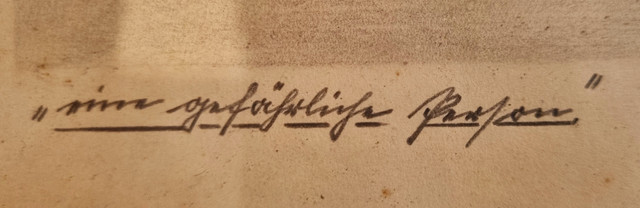 „eine gefährliche Person."